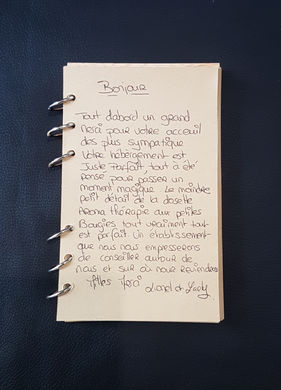 Bonjour
Tout d'abord un grand
merci pour votre acceuil
des plus sympatique
Votre hébergement est
Juste Parfait, tout à été
pensé pour passer un
moment magique. Le moindre
petit détail de la dosette
Aroma thérapie aux petites
Bougies tout vraiment tout
est parfait. Un établissement
que nous nous empresserons
de conseiller autour de
nous et sur où nous reviendrons
Milles Merci
Lionel et